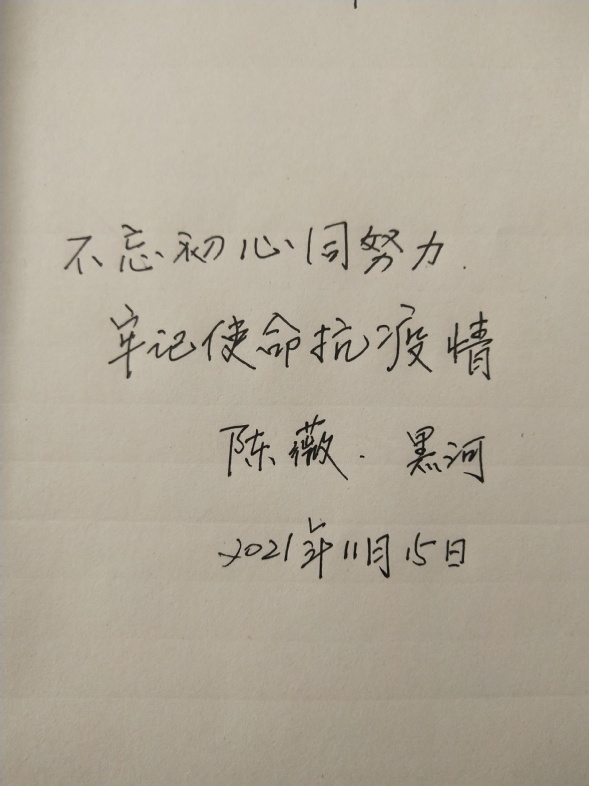 不忘初心同努力.
牢记使命抗疫情
陈薇. 黑河
2021年11月15日